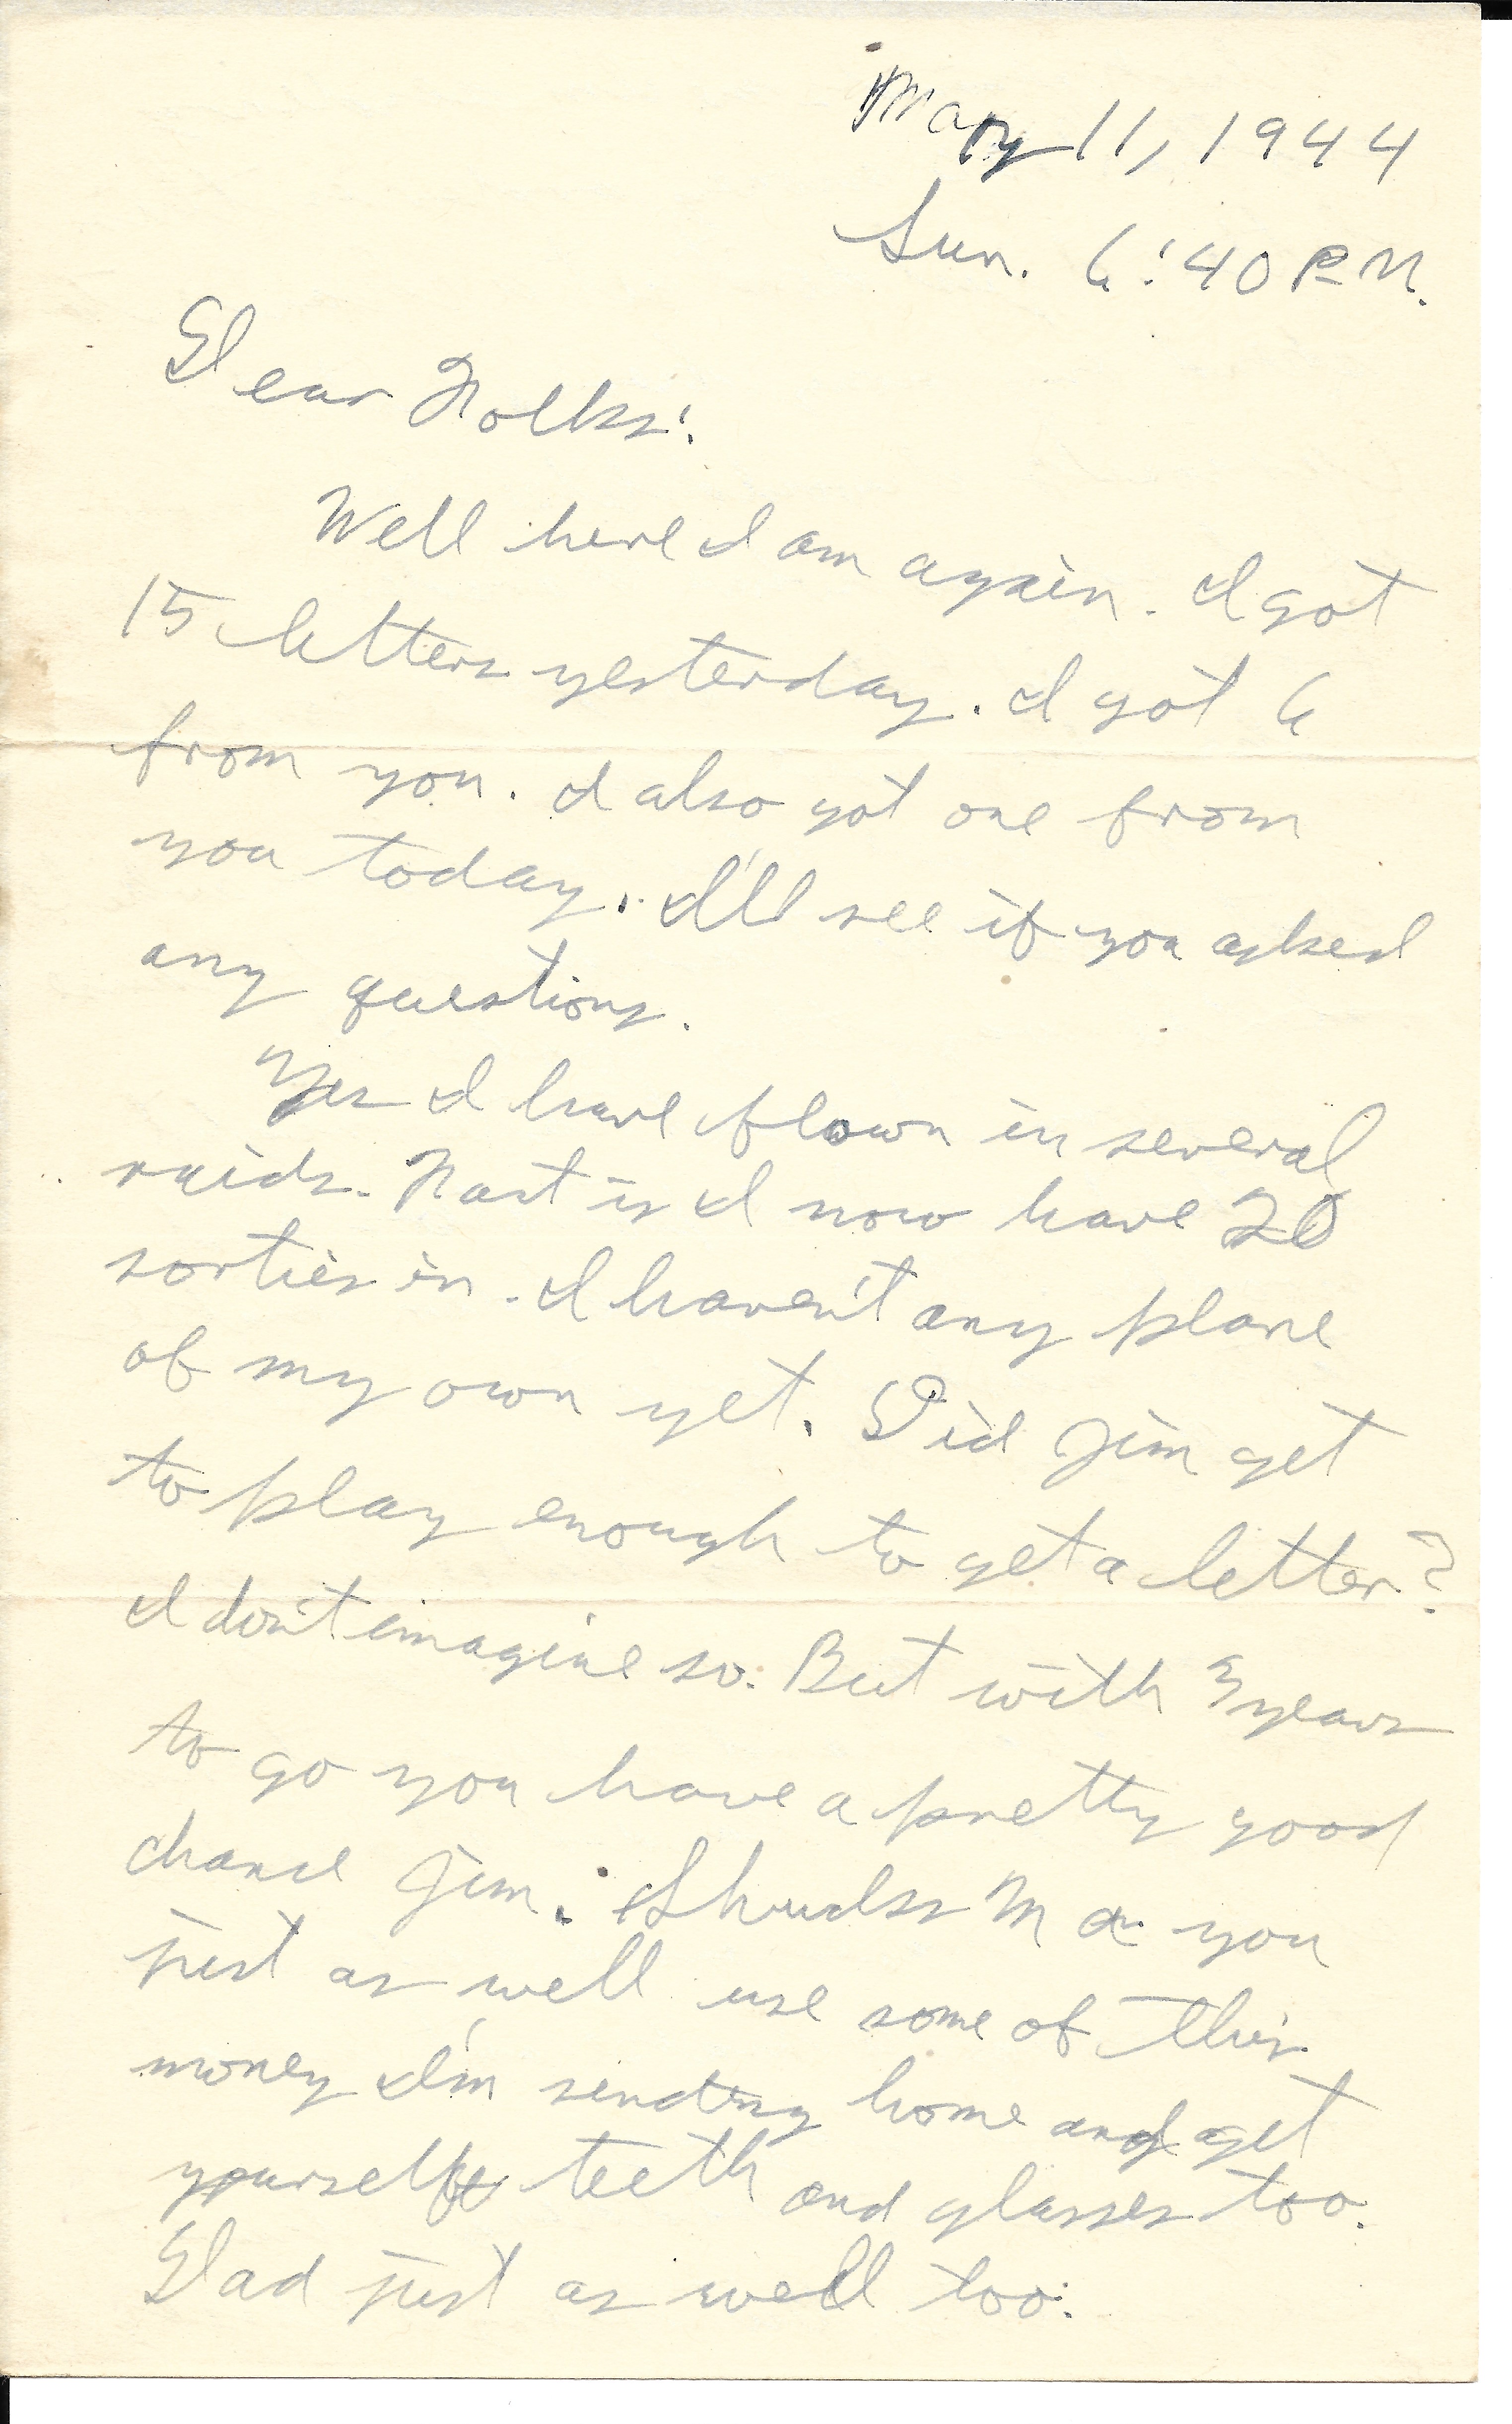 May 11, 1944
Sun. 6:40 P.M.
Dear Folks:
Well here I am again. I got
15 letters yesterday. I got 6
from you. I also got one from
you today. I'll see if you asked
any questions.
Yes I have flown in several
raids. Fact is I now have 20
sorties in. I haven't any plane
of my own yet. Did Jim get
to play enough to get a letter?
I don't imagine so. But with 3 years
to go you have a pretty good
chance Jim. Shucks Ma you
just as well use some of this
money I'm sending home and get
yourself teeth and glasses too.
Dad just as well too.